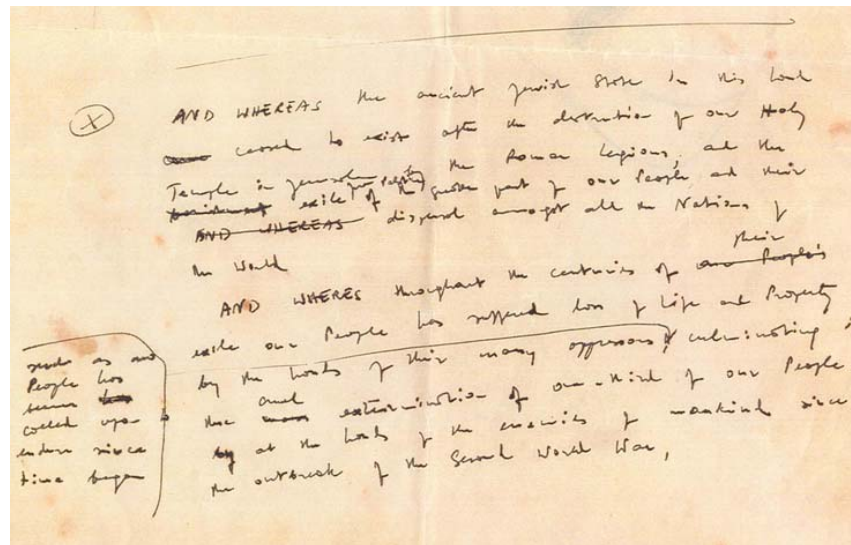 AND WHEREAS the ancient Jewish State in this land
ceased to exist after the destruction of our Holy
Temple in Jerusalem by the Roman Legions, and the
exile from Palestine of the greater part of our People and their
AND WHEREAS dispersal amongst all the Nations of
the World
their
AND WHERES throughout the centuries of our People's
exile our People has suffered loss of Life and Property
by the hands of their many oppressors, culminating in
the cruel extermination of one-third of our People
by at the hands of the enemies of mankind since
the outbreak of the Second World War,
such as no
People has
been
called upon
endure since
time began
X